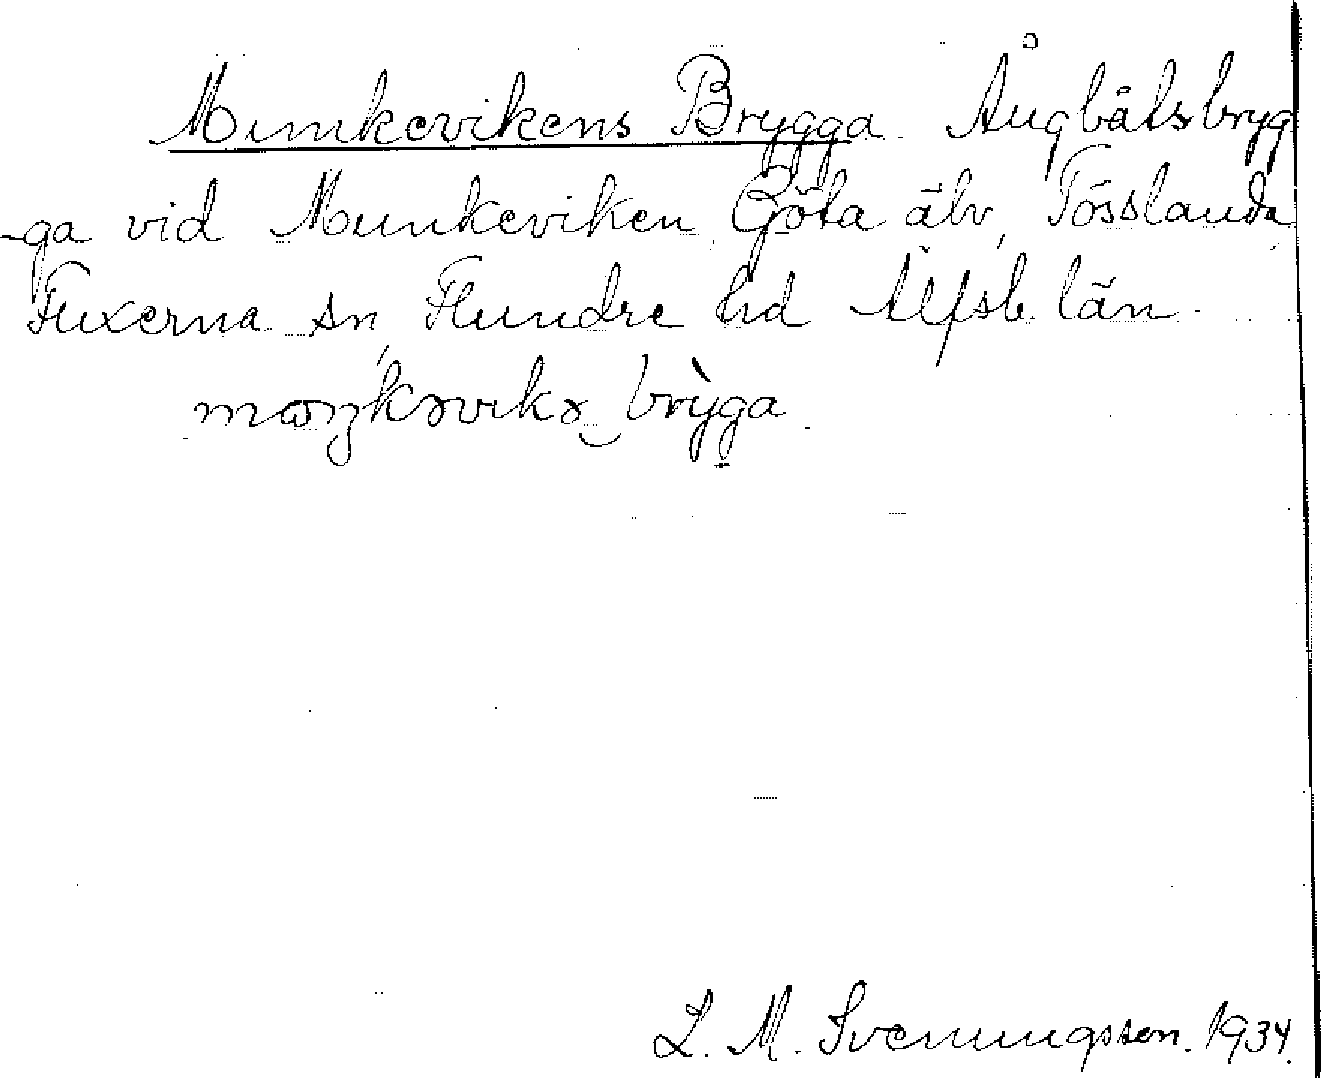 Munkevikens Brygga. Ångbåtsbryg
-ga vid Munkeviken, Göta älv, Tösslanda
Fuxerna sn, Flundre hd Älfsb. län.
møŋkəvikə‿brỳga.
L. M. Svenungsson. 1934.